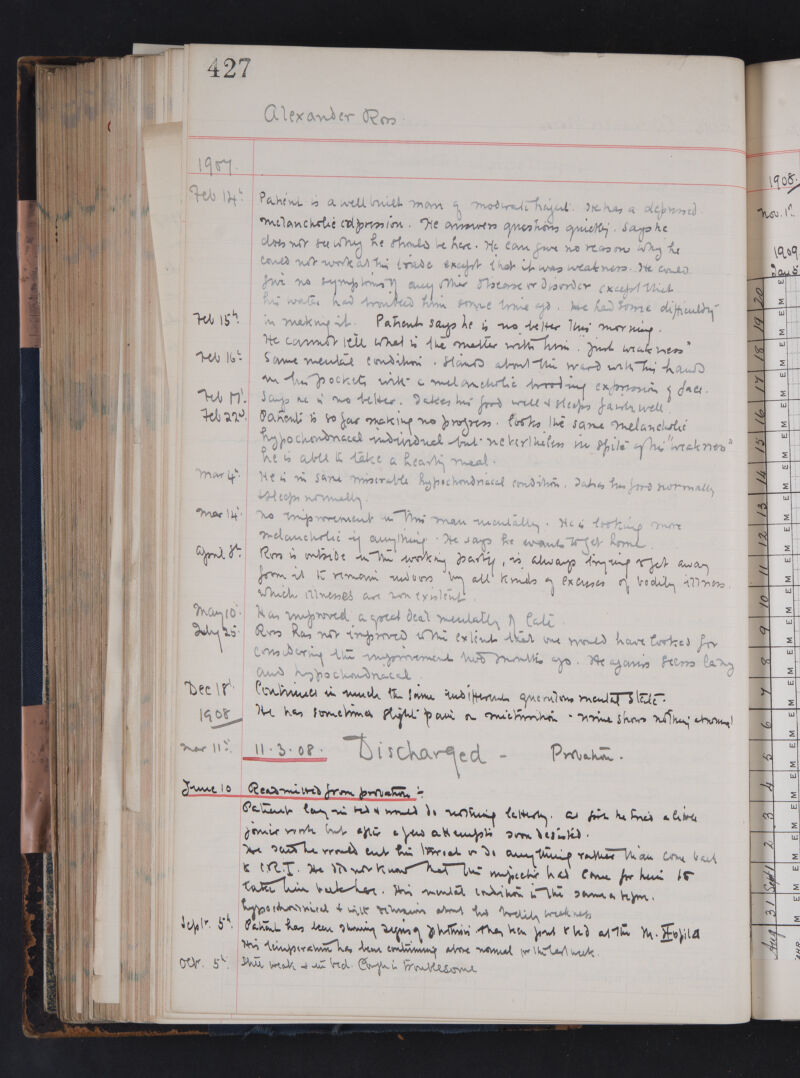 427
Alexander Ross.
1907.
Feb 14th Patient is a well built man of moderate height. He has a depressed
melancholic expression. He answers questions quietly. Says he
does not see why he should be here. He can give no reason why he
could not work at his trade except that it was weakness. He could
give no symptoms of any other disease or disorder except that
his water had troubled him some time ago. He had some difficulty
in making it.
Feb 15th. Patient says he is no better this morning.
He cannot tell what is the matter with him. "Just weakness"
Feb 16th Same mental condition. Stands about the ward with his hands
in his pockets with a melancholic brooding expression of face.
Feb 17th. Says he is no better. Takes his food well & sleeps fairly well.
Feb 22nd. Patient is so far making no progress. Looks the same melancholic
hypochondriacal individual but nevertheless in spite of his "weakness"
he is able to take a hearty meal.
Mar 4th. He is in same miserable hypochondriacal condition. Takes his food normally
& sleeps normally.
Mar 14th. No improvement in this man mentally. He is looking more
melancholic if anything. He says he wants to get home.
April 8th. Ross is outside in the working party, is always trying to get away
from it to remain indoors by all kinds of excuses of bodily illness.
which illnesses are non existent.
May 10th. Has improved a great deal mentally of late.
July 25th. Ross has not improved to the extent that one would have looked for
considering the improvement two months ago. He again seems lazy
and hypochondriacal.
Dec 18th. Continues in much the same indifferent querulous mental state.
1908 He has sometimes slight pain on micturition - urine shows nothing abnormal
Mar 11th. 11.3.08. Discharged - Probation.
June 10 Readmitted from probation :-
Patient lay in bed & would do nothing latterly. At first he tried a little
joiner work but after a few attempts soon desisted.
He said he would cut his throat or do anything rather than come back
to He did not know that the inspector had come for him to
take him back here. His mental condition is the same as before.
hypochondriacal & about his bodily weakness
Septr. 5th. Patient has been showing signs of phthisis & has been put to bed at the M. Hospital
His temperature has been continuing above normal for the last week.
Oct. 5th. Still weak & in bed. Cough is troublesome
1908.
Nov. 1st
1909
20
19
18
17
16
15
14
13
12
11
10
9
8
7
6
5
4
3
2
Sept 1
31
Aug
M E M E M E M E M E M E M E M E M E M E M E M E M E M E M E M E M E M E M E M E M E M E